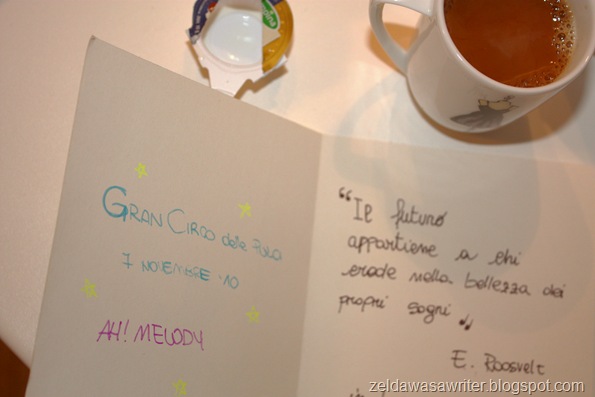 GRAN CIRCO delle
7 NOVEMBRE '10
AH! MELODY
"Il futuro
appartiene a chi
crede nella bellezza dei
propri sogni"
E. Roosvelt
zeldawasawriter.blogspot.com